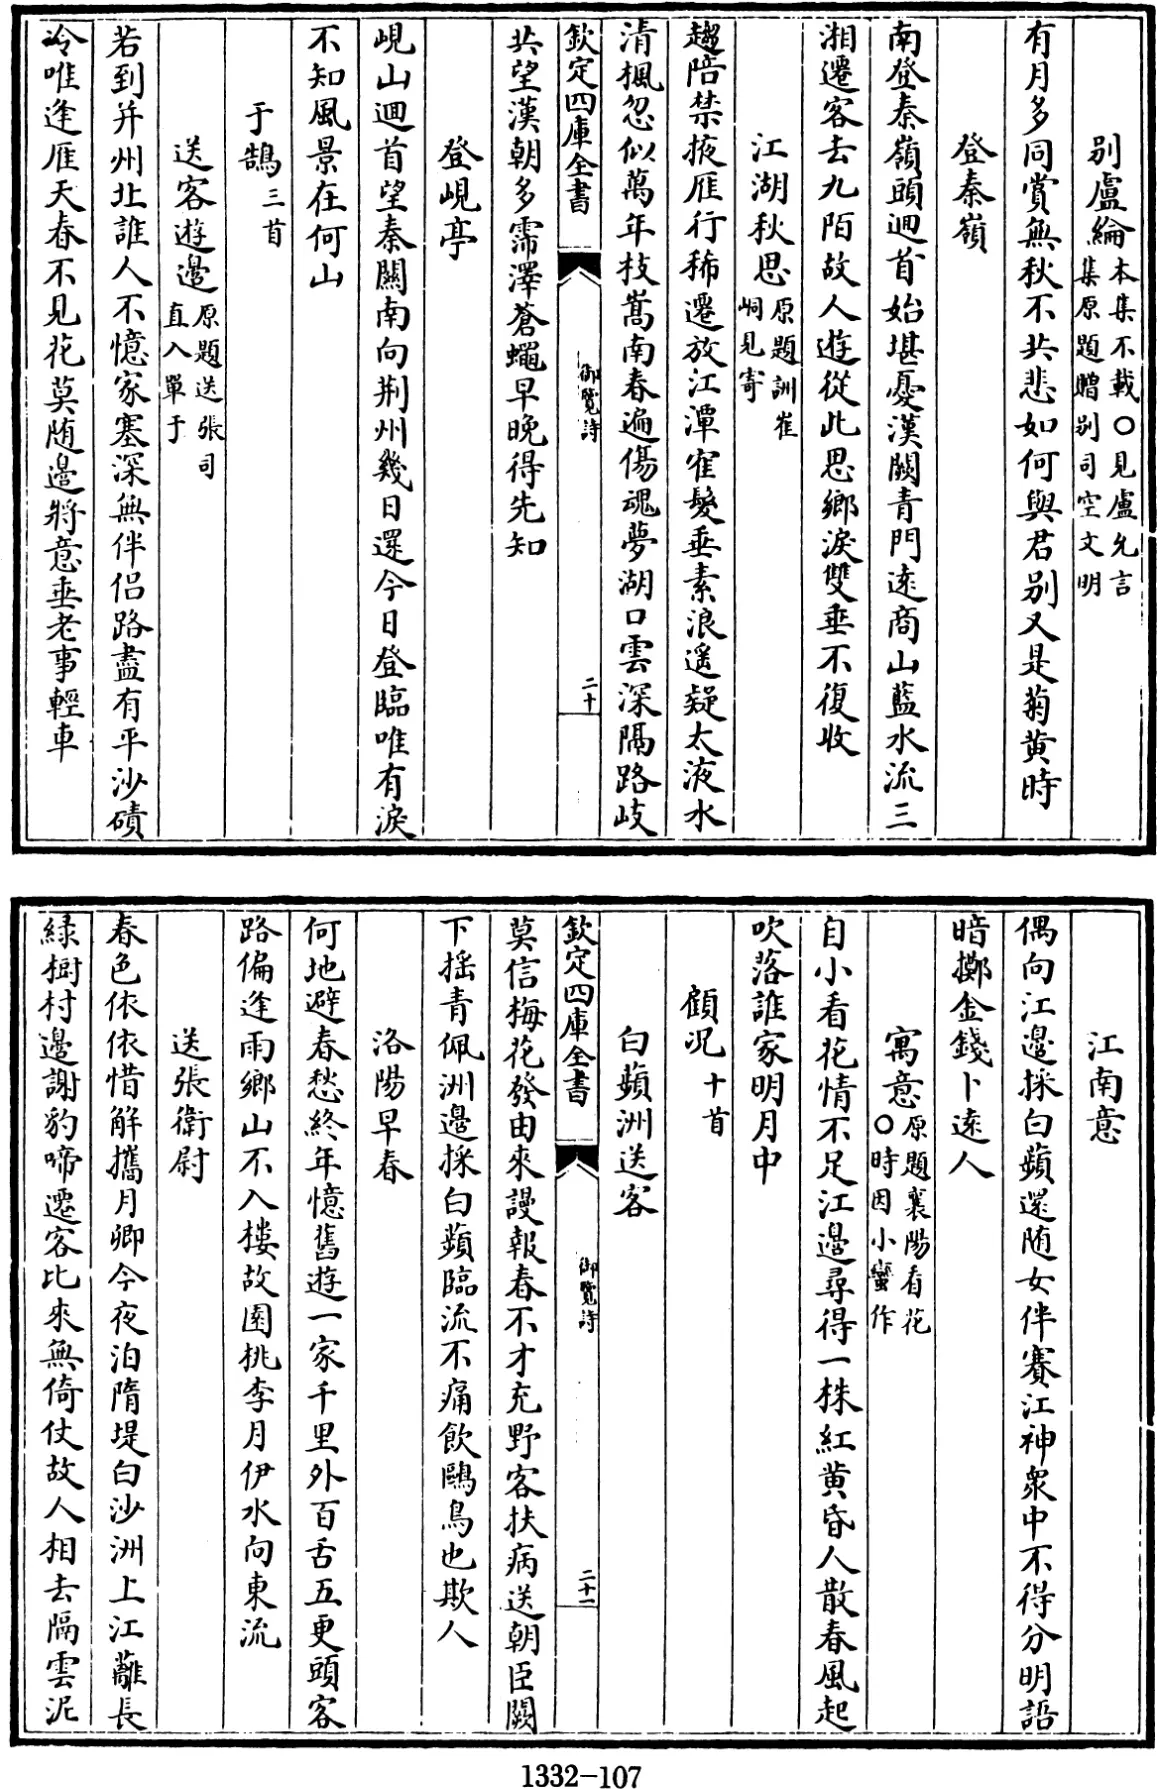 別盧綸本集不載○見盧允言集原題贈別司空文明
有月多同賞無秋不共悲如何與君別又是菊黄時
登秦嶺
南登秦嶺頭迴首始堪憂漢闕青門逺商山藍水流三
湘遷客去九陌故人遊從此思鄉淚雙垂不復收
江湖秋思原題訓崔峒見寄
趨陪禁掖雁行稀遷放江潭隺髮垂素浪遥疑太液水
清楓忽似萬年枝嵩南春遍傷魂夢湖口雲深隔路岐
欽定四庫全書
御覽詩
二十
共望漢朝多霈澤蒼蠅早晩得先知
登峴亭
峴山迴首望秦關南向荆州幾日還今日登臨唯有淚
不知風景在何山
于鵠三首
送客遊邊原題送張司直入單于
若到并州北誰人不憶家塞深無伴侣路盡有平沙磧
冷唯逢雁天春不見花莫随邉將意垂老事輕車
江南意
偶向江邊採白蘋還随女伴賽江神衆中不得分明語
暗擲金錢卜逺人
寓意原題襄陽看花○時因小蠻作
自小看花情不足江邊尋得一株紅黄昏人散春風起
吹落誰家明月中
顧况十首
白蘋洲送客
欽定四庫全書
御覽詩
二十一
莫信梅花發由來謾報春不才充野客扶病送朝臣闕
下摇青佩洲邊採白蘋臨流不痛飲鷗鳥也欺人
洛陽早春
何地避春愁終年憶舊遊一家千里外百舌五更頭客
路偏逢雨鄉山不入樓故園桃李月伊水向東流
送張衛尉
春色依依惜解攜月卿今夜泊隋堤白沙洲上江蘺長
緑樹村邊謝豹啼遷客比來無倚仗故人相去隔雲泥
1332-107